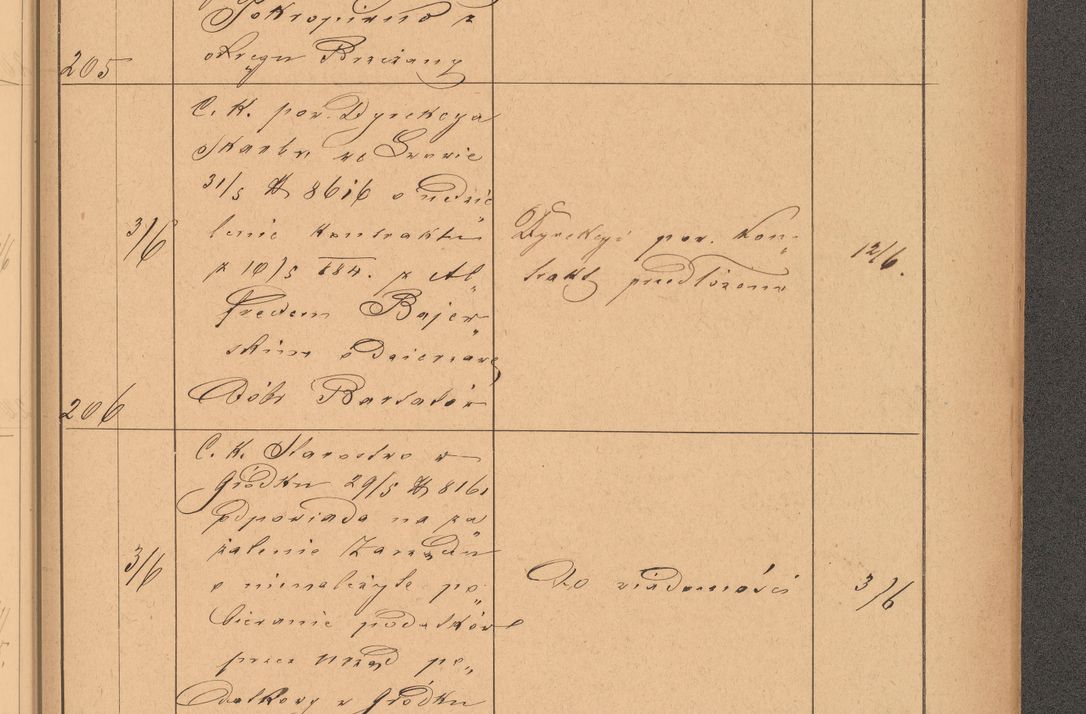 Pokropivno z
okręgu Brzeżany
205
C. K. pow. Dyrekcya
Skarbu we Lwowie
31/5 № 8616 o udzie
lenie kontraktu
3/6
z 10/5 884. z Al„
fredem Bajew„
skim o dzierżawę
Dóbr Bartatów
206
Dyrekcyi pow. kon„
trakt przedłożono
12/6.
C. K. Starostwo w
Gródku 29/5 № 8161
odpowiada na za„
żalenie Zarządu
3/6
o nienależyte po„
bieranie podatków
przez urząd po„
datkowy w Gródku
Do wiadomości
3/6